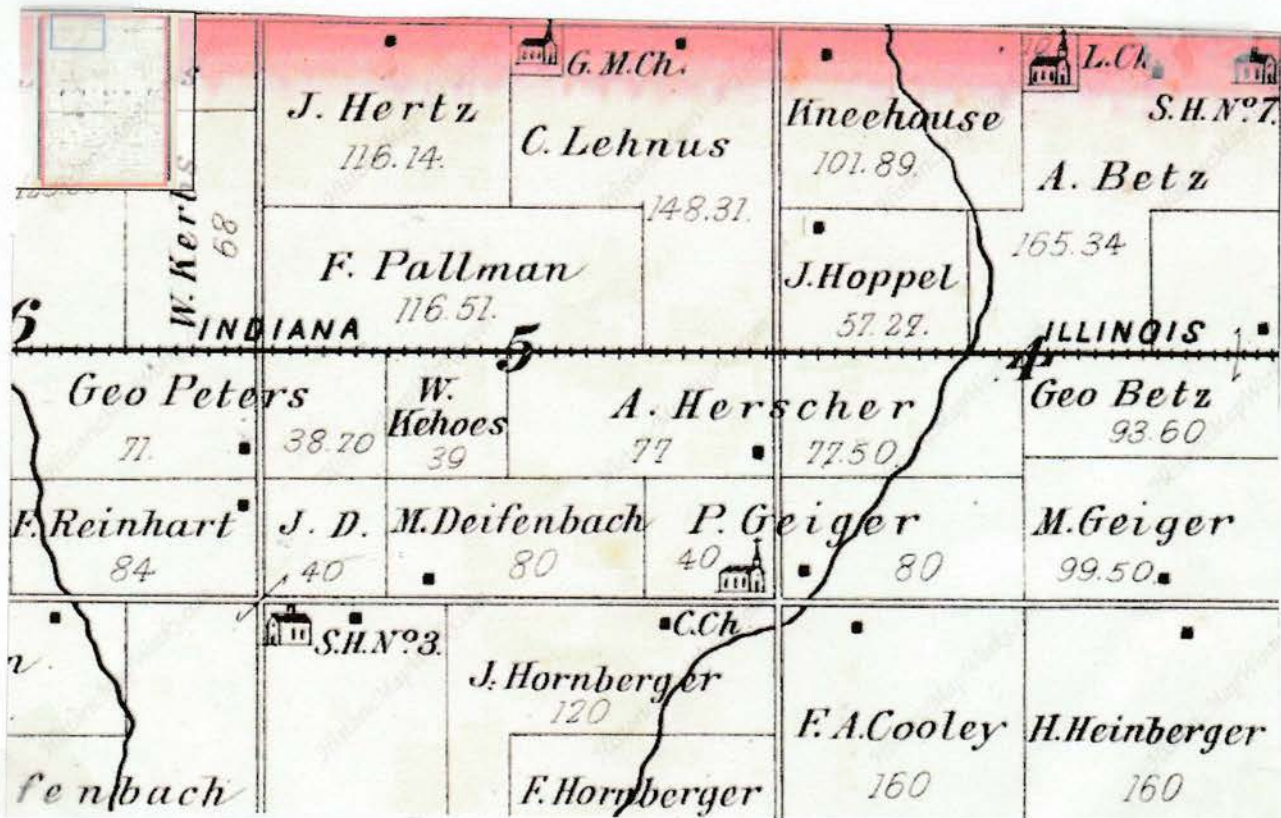 G.M.Ch.
L.Ch
S.H.Nº7.
J. Hertz
116.14.
C. Lehnus
148.31.
Kneehouse
101.89.
A. Betz
165.34
W. Kerbs
68
F. Pallman
116.51.
J.Hoppel
57.27.
6
INDIANA
5
4
ILLINOIS
Geo Peters
71.
38.20
W.
Kehoes
39
A. Herscher
77
77.50
Geo Betz
93.60
F. Reinhart
84
J. D.
40
M.Deifenbach
80
P. Geiger
40
80
M.Geiger
99.50
S.H.Nº3.
C.Ch
n.
J. Hornberger
120
F. A. Cooley
160
H. Heinberger
160
fenbach
F. Hornberger